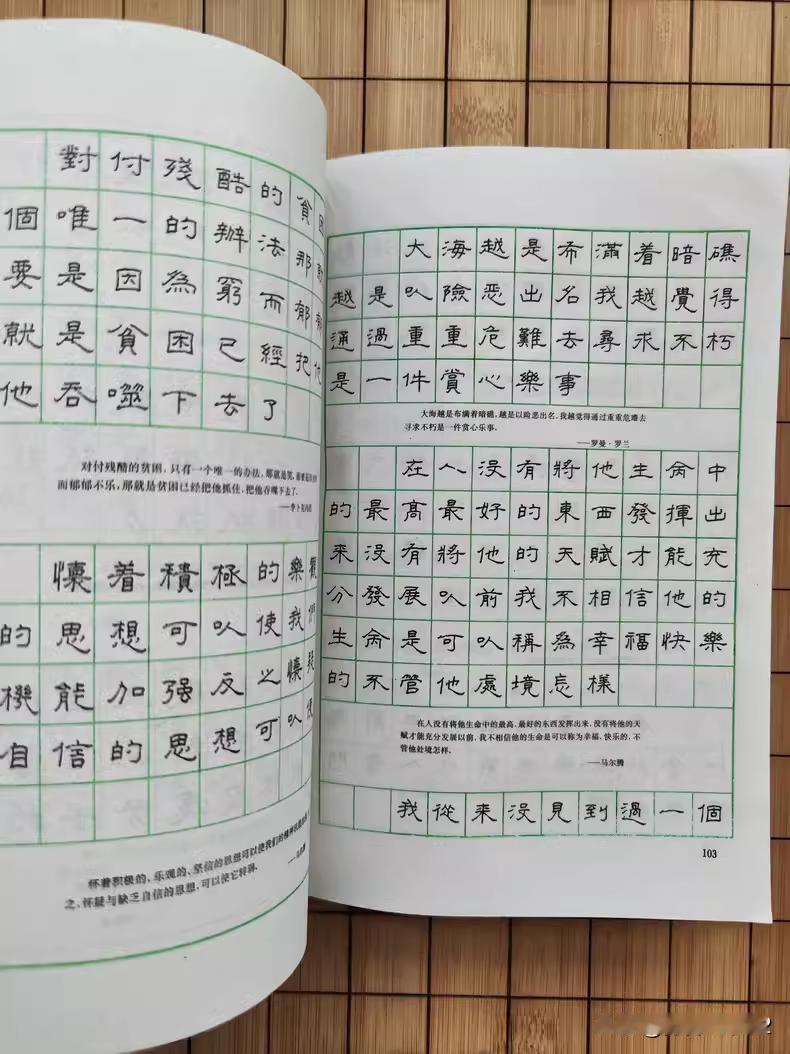 對付殘酷的貧困
個唯一的辦法那就
要是因為窮而郁郁
就是貧困已經把他
他吞噬下去了
对付残酷的贫困,只有一个唯一的办法,那就是笑,而要是因为穷
而郁郁不乐,那就是贫困已经把他抓住,把他吞噬下去了.
——李卜克内西
懷着積極的樂觀
的思想可以使我們
機能加强反之懷疑
自信的思想可以使
怀着积极的、乐观的、坚信的思想可以使我们的精神机能
之,怀疑与缺乏自信的思想,可以使它转弱.
——马尔腾
大海越是布滿着暗礁
越是以險恶出名我越覺得
通過重重危難去尋求不朽
是一件賞心樂事
大海越是布满着暗礁,越是以险恶出名,我越觉得通过重重危难去
寻求不朽是一件赏心乐事。
——罗曼·罗兰
在人没有將他生命中
的最高最好的東西發揮出
来没有將他的天賦才能充
分發展以前我不相信他的
生命是可以稱為幸福快樂
的不管他處境怎樣
在人没有将他生命中的最高、最好的东西发挥出来,没有将他的天
赋才能充分发展以前,我不相信他的生命是可以称为幸福、快乐的,不
管他处境怎样。
——马尔腾
我從来没見到過一個
103